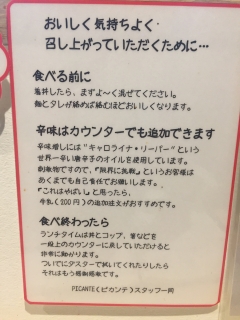 おいしく気持ちよく
召し上がっていただくために…
食べる前に
着丼したら、まずよ〜く混ぜてください。
麺とタレが絡めば絡むほどおいしくなります。
辛味はカウンターでも追加できます
辛味増しには"キャロライナ・リーパー"という
世界一辛い唐辛子のオイルを使用しています。
刺激物ですので、『限界に挑戦』というお客様は
あくまでも自己責任でお願いします。
『これはやばい』と思ったら、
牛乳(200円)の追加注文がおすすめです。
食べ終わったら
ランチタイムは丼とコップ、箸などを
一段上のカウンターに戻していただけると
非常に助かります。
ついでにダスターで拭いてくれたりしたら
それはもう感謝感激です。
PICANTE(ピカンテ)スタッフ一同